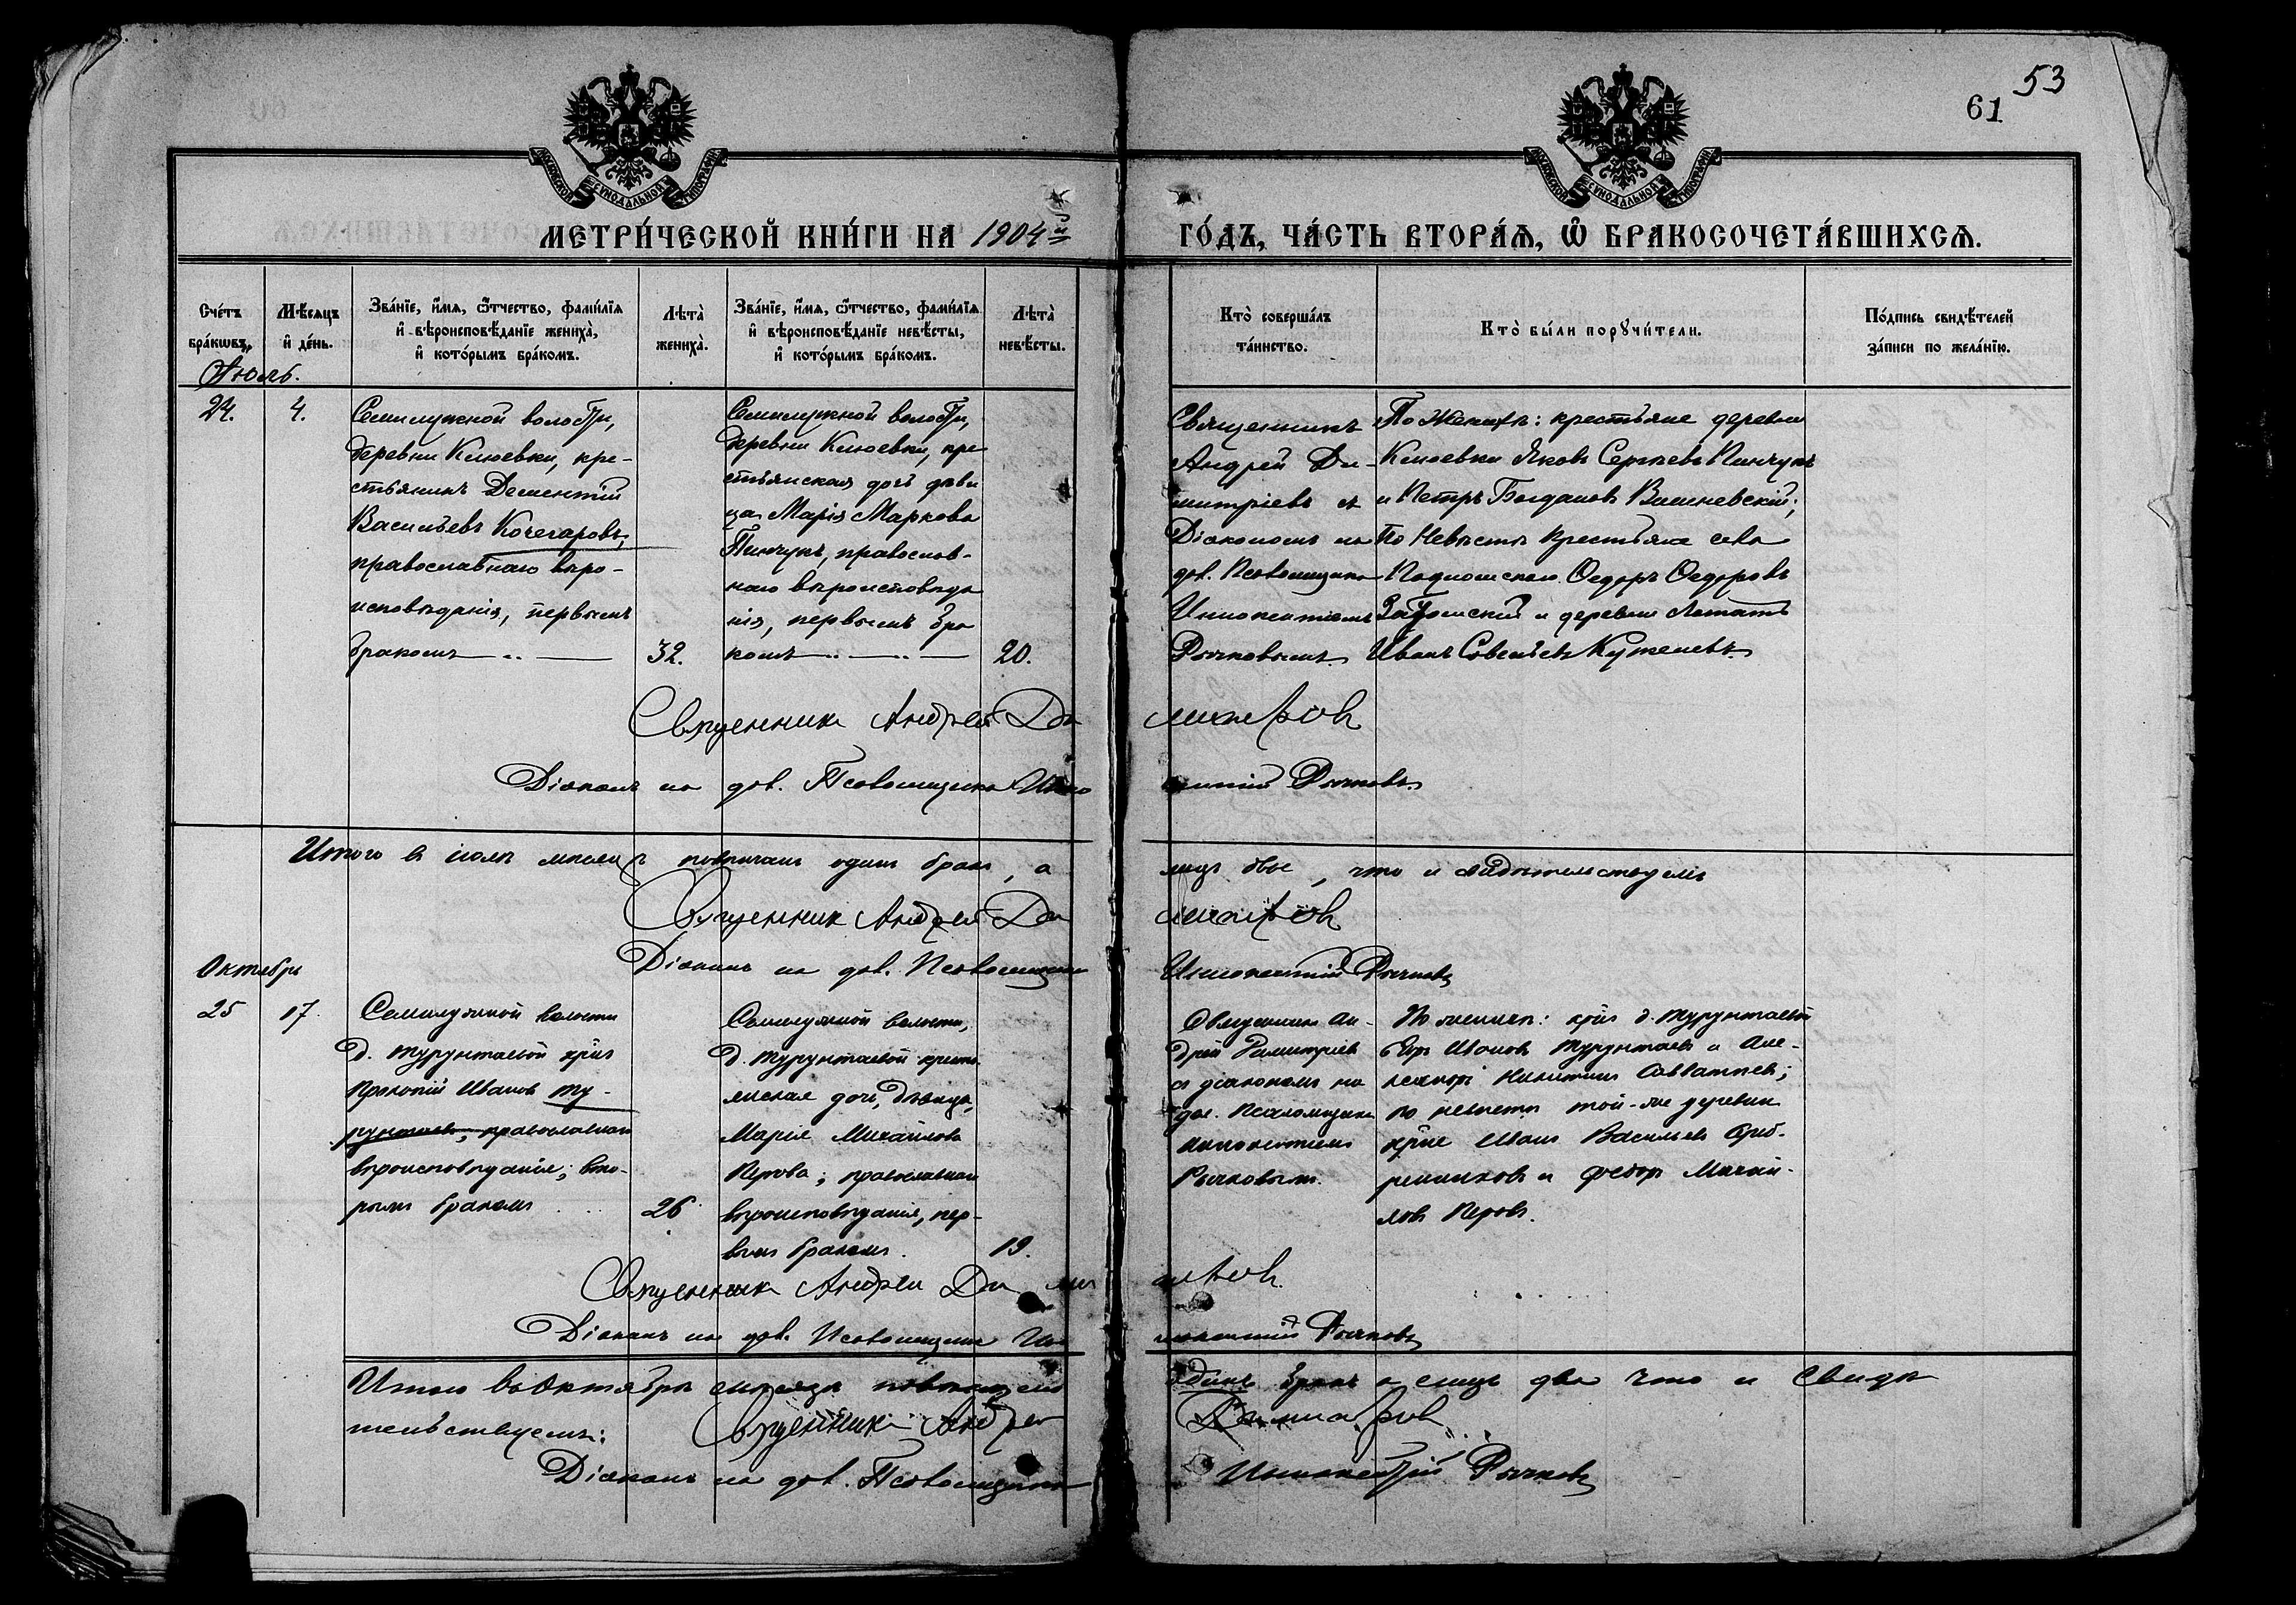 53
61
МЕТРИ́ЧЕСКОЙ КНИ́ГИ НА 1904й
ГО́ДЪ, ЧА́СТЬ ВТОРА́Ѧ, Ѡ҆ БРАКОСОЧЕТА́ВШИХСѦ.
Сче́тъ
бра́кωвъ.
Мѣ́сяцъ
и҆ де́нь.
Зва́нїе, и҆́мѧ, ѻ҆́тчество, фами́лїѧ
и҆ вѣроисповѣ́данїе жениха̀,
и҆ кото́рымъ бра́комъ.
Лѣ́та̀
жениха̀.
Зва́нїе, и҆́мѧ, ѻ҆́тчество, фами́лїѧ
и҆ вѣроисповѣ́данїе невѣ́сты,
и҆ кото́рымъ бра́комъ.
Лѣ́та̀
невѣ́сты.
Кто̀ соверша́лъ
та́инство.
Кто̀ бы́ли порꙋчи́тели.
По́дпись свидѣ́телей
за́писи по жела́нїю.
Іюль.
24.
4.
Семилужной волости,
деревни Клюевки, кре-
стьянинъ Дементій
Васильевъ Кочегаровъ,
православнаго вѣро-
исповѣданія, первымъ
бракомъ
32.
Семилужной волости,
деревни Клюевки, кре
стьянская дочь дѣви
ца Марія Маркова
Пинчукъ, православ-
наго вѣроисповѣда
нія, первымъ бра
комъ
20.
Священникъ
Андрей Ди-
митріевъ съ
Діакономъ на
дол. Псаломщика
Иннокентіемъ
Рычковымъ
По Женихѣ: крестьяне деревни
Клюевки Яковъ Сергѣевъ Пинчукъ
и Петръ Богдановъ Вишневскій;
По Невѣстѣ крестьяне села
Ѳедоръ Ѳедоровъ
и деревни
Иванъ Савельевъ
Священникъ Андрей Димитріевъ
Діаконъ на дол. Псаломщика Иннокентій Рычковъ
Итого в іюлѣ мѣсяцѣ повѣнчанъ одинъ бракъ, а лицъ двое, что и свидѣтельствуемъ
Священникъ Андрей Димитріевъ
Діаконъ на дол. Псаломщика Иннокентій Рычковъ
Октябрь
25
17.
Семилужной волости
д. Турунтаевой кр-нъ
Прокопій Ивановъ Ту-
рунтаевъ, православнаго
вѣроисповѣданія, вто-
рымъ бракомъ
26
Семилужной волости,
д. Турунтаевой кресть-
янская дочь, дѣвица,
Марія Михайлова
Перова; православнаго
вѣроисповѣданія, пер-
вымъ бракомъ.
19.
Священникъ Ан-
дрей Димитріевъ
съ діакономъ на
дол. Псаломщика
Иннокентіемъ
Рычковымъ.
По женихѣ: кр-не д. Турунтаевой
Ивановъ Турунтаевъ и Але-
ксандръ Никитинъ Савватѣевъ;
по невѣстѣ той-же деревни
кр-не Иванъ Васильевъ Среб-
ренниковъ и Федоръ Михай-
ловъ Перовъ.
Священникъ Андрей Димитріевъ
Діаконъ на дол. Псаломщика Иннокентій Рычковъ
Итого въ Октябрѣ мѣсяцѣ повѣнчано одинъ бракъ а лицъ два что и свидѣ
тельствуемъ:
Священникъ Андрей Димитріевъ
Діаконъ на дол. Псаломщика Иннокентій Рычковъ